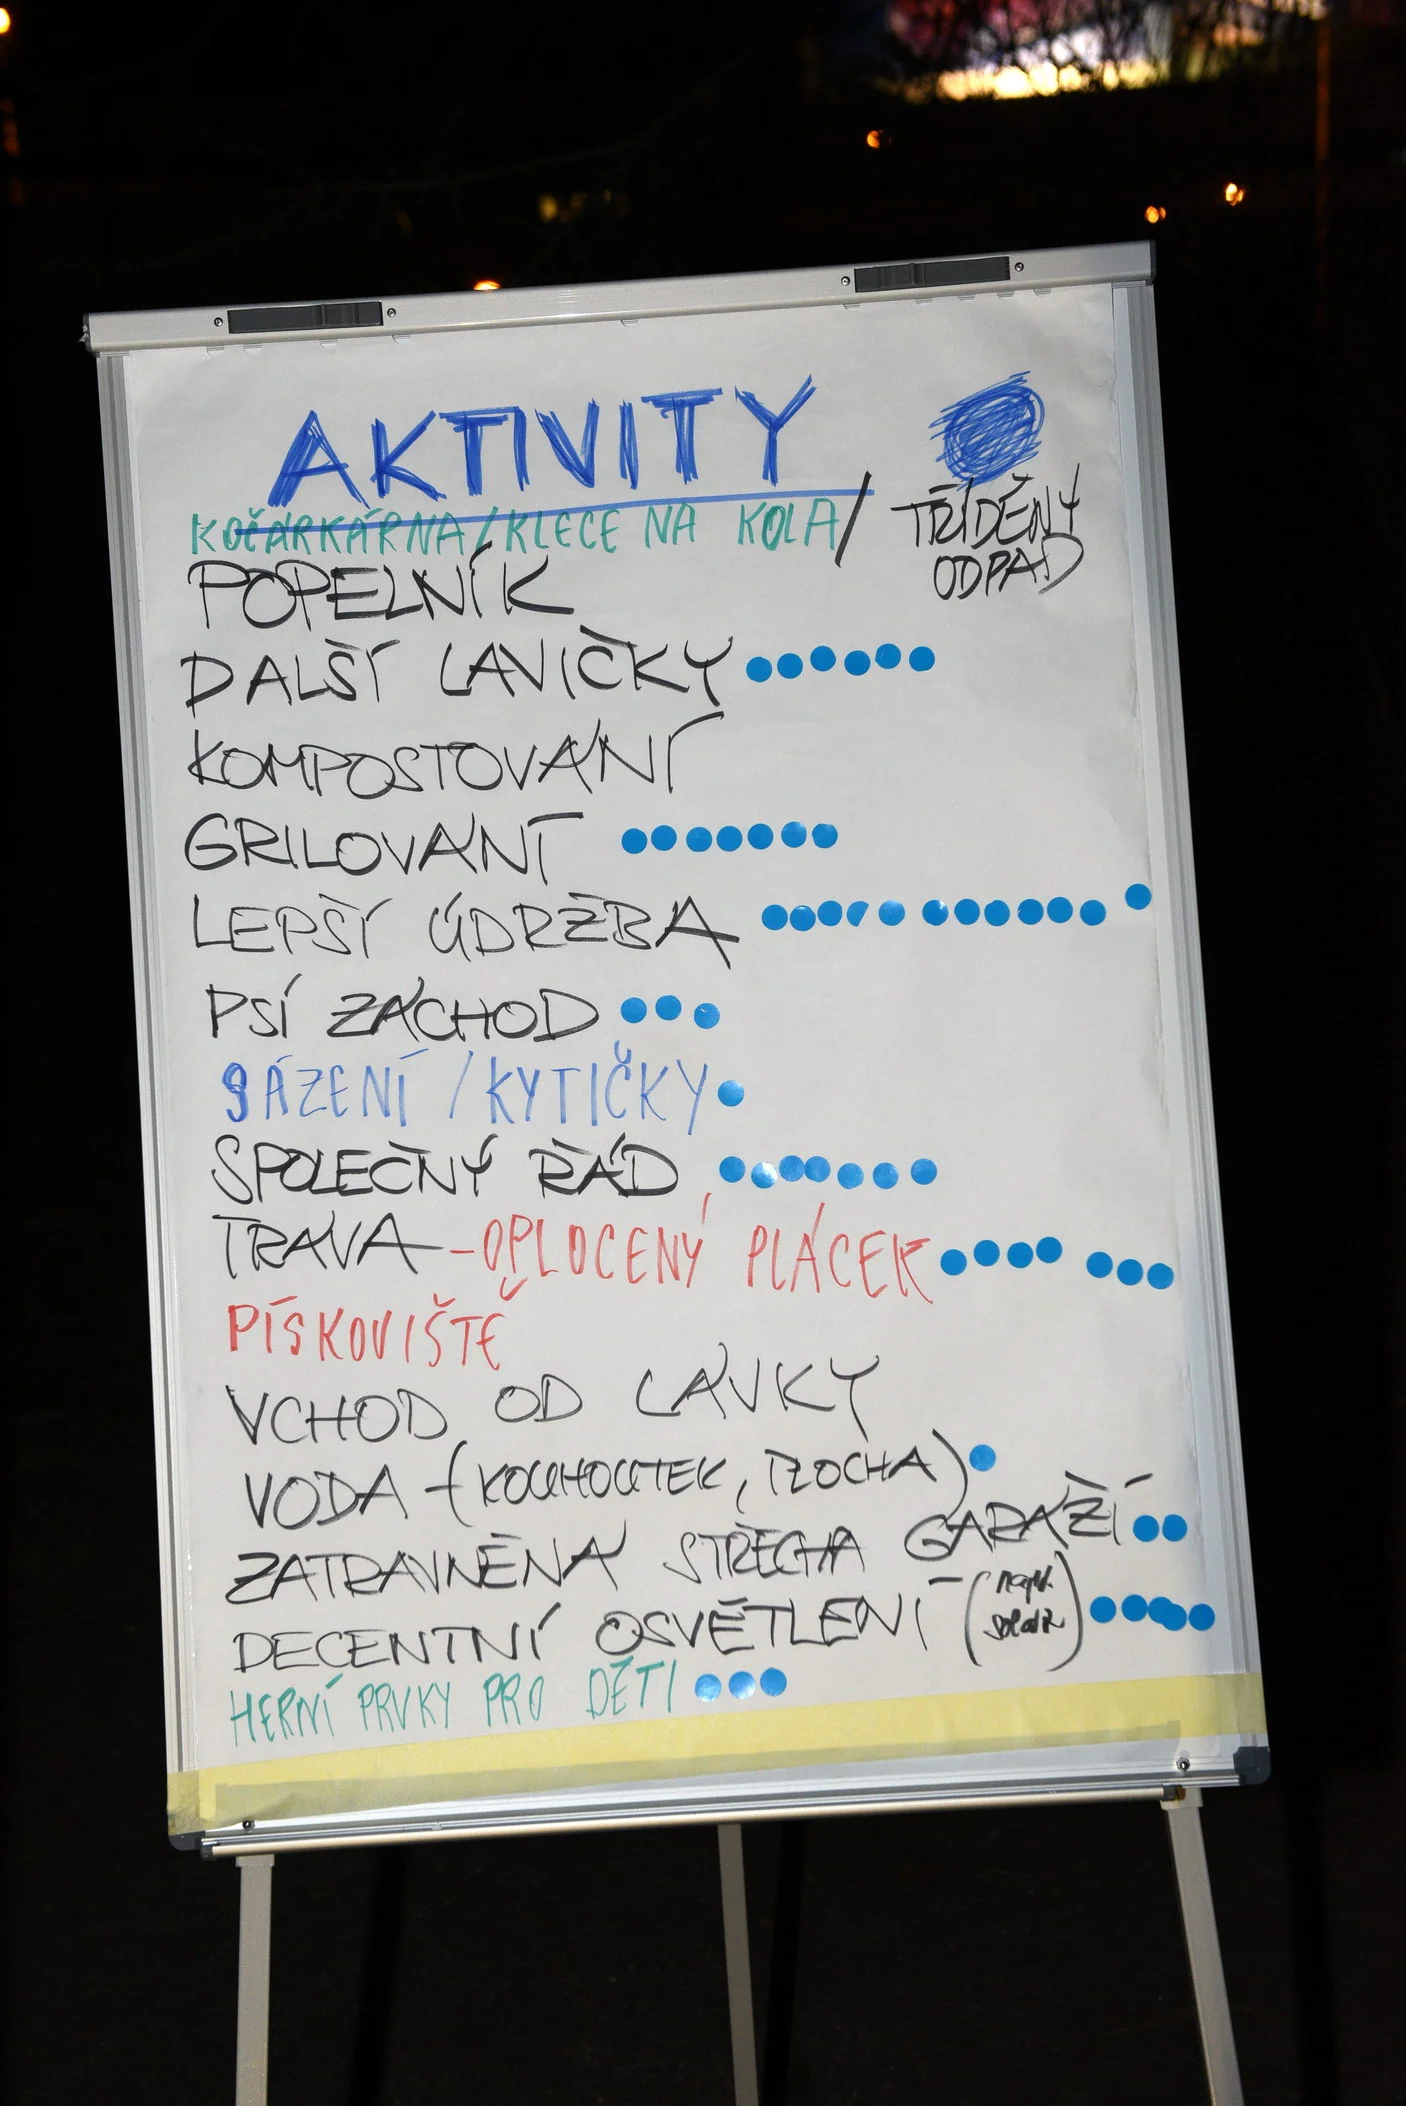 AKTIVITY
KOČÁRKÁRNA/KLECE NA KOLA/ TŘÍDĚNÝ
ODPAD
POPELNÍK
DALŠÍ LAVIČKY
KOMPOSTOVÁNÍ
GRILOVÁNÍ
LEPŠÍ ÚDRŽBA
PSÍ ZÁCHOD
SÁZENÍ /KYTIČKY
SPOLEČNÝ ŘÁD
TRÁVA -OPLOCENÝ PLÁCEK
PÍSKOVIŠTĚ
VCHOD OD LÁVKY
VODA - (KOUHOUTEK, PLOCHA)
ZATRAVNĚNÁ STŘECHA GARÁŽÍ
DECENTNÍ OSVĚTLENÍ - (např.
solár)
HERNÍ PRVKY PRO DĚTI